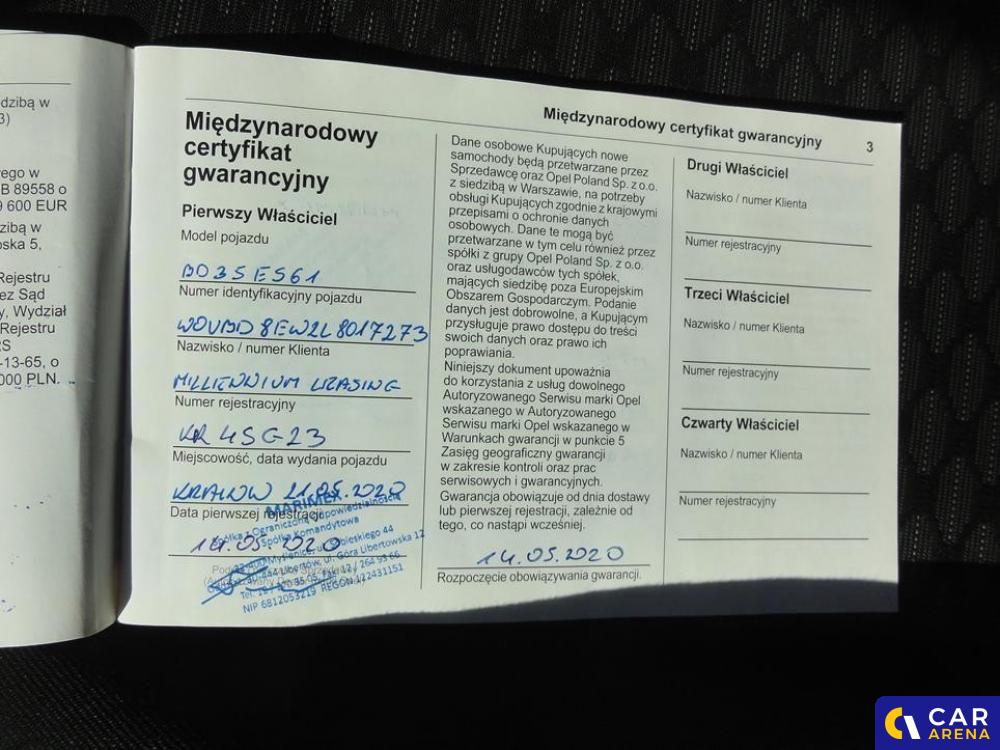 dzibą w
3)
ego w
B 89558 o
9 600 EUR
dzibą w
oska 5,
Rejestru
ez Sąd
y, Wydział
Rejestru
RS
-13-65, o
000 PLN.
Międzynarodowy certyfikat gwarancyjny 3
Międzynarodowy
certyfikat
gwarancyjny
Pierwszy Właściciel
Model pojazdu
BD3SES61
Numer identyfikacyjny pojazdu
W0VBD8EW2L8017273
Nazwisko / numer Klienta
MILLENNIUM LEASING
Numer rejestracyjny
KR 4SG23
Miejscowość, data wydania pojazdu
KRAKÓW 21.05.2020
Data pierwszej rejestracji
14.05.2020
MARIMEX
Spółka z Ograniczoną Odpowiedzialnością
Spółka Komandytowa
32-400 Myślenice, ul. Sobieskiego 44
30-444 Libertów, ul. Góra Libertowska 12
NIP 6812053219 REGON 122431151
Dane osobowe Kupujących nowe
samochody będą przetwarzane przez
Sprzedawcę oraz Opel Poland Sp. z o.o.
z siedzibą w Warszawie, na potrzeby
obsługi Kupujących zgodnie z krajowymi
przepisami o ochronie danych
osobowych. Dane te mogą być
przetwarzane w tym celu również przez
spółki z grupy Opel Poland Sp. z o.o.
oraz usługodawców tych spółek,
mających siedzibę poza Europejskim
Obszarem Gospodarczym. Podanie
danych jest dobrowolne, a Kupującym
przysługuje prawo dostępu do treści
swoich danych oraz prawo ich
poprawiania.
Niniejszy dokument upoważnia
do korzystania z usług dowolnego
Autoryzowanego Serwisu marki Opel
wskazanego w Autoryzowanego
Serwisu marki Opel wskazanego w
Warunkach gwarancji w punkcie 5
Zasięg geograficzny gwarancji
w zakresie kontroli oraz prac
serwisowych i gwarancyjnych.
Gwarancja obowiązuje od dnia dostawy
lub pierwszej rejestracji, zależnie od
tego, co nastąpi wcześniej.
14.05.2020
Rozpoczęcie obowiązywania gwarancji.
Drugi Właściciel
Nazwisko / numer Klienta
Numer rejestracyjny
Trzeci Właściciel
Nazwisko / numer Klienta
Numer rejestracyjny
Czwarty Właściciel
Nazwisko / numer Klienta
Numer rejestracyjny
CAR
ARENA